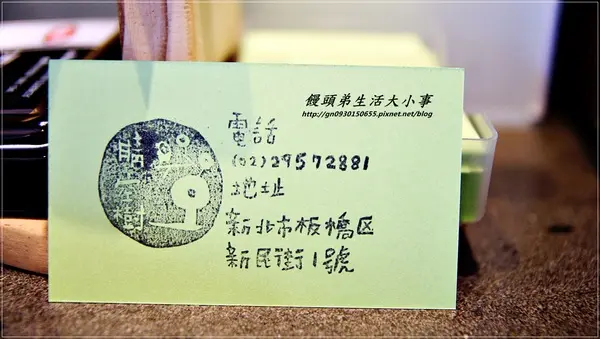 饅頭弟生活大小事
http://gn0930150655.pixnet.net/blog
電話
(02)29572881
地址
新北市板橋区
新民街1號